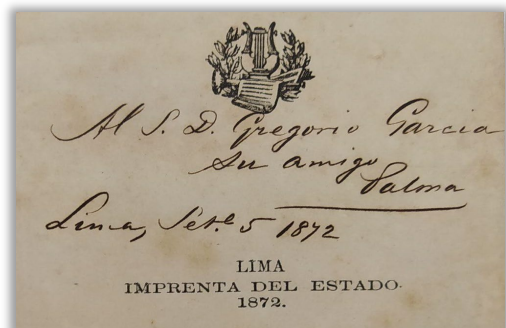 Al S. D. Gregorio Garcia
Su amigo
Palma
Lima, Set.e 5 1872
LIMA
IMPRENTA DEL ESTADO.
1872.